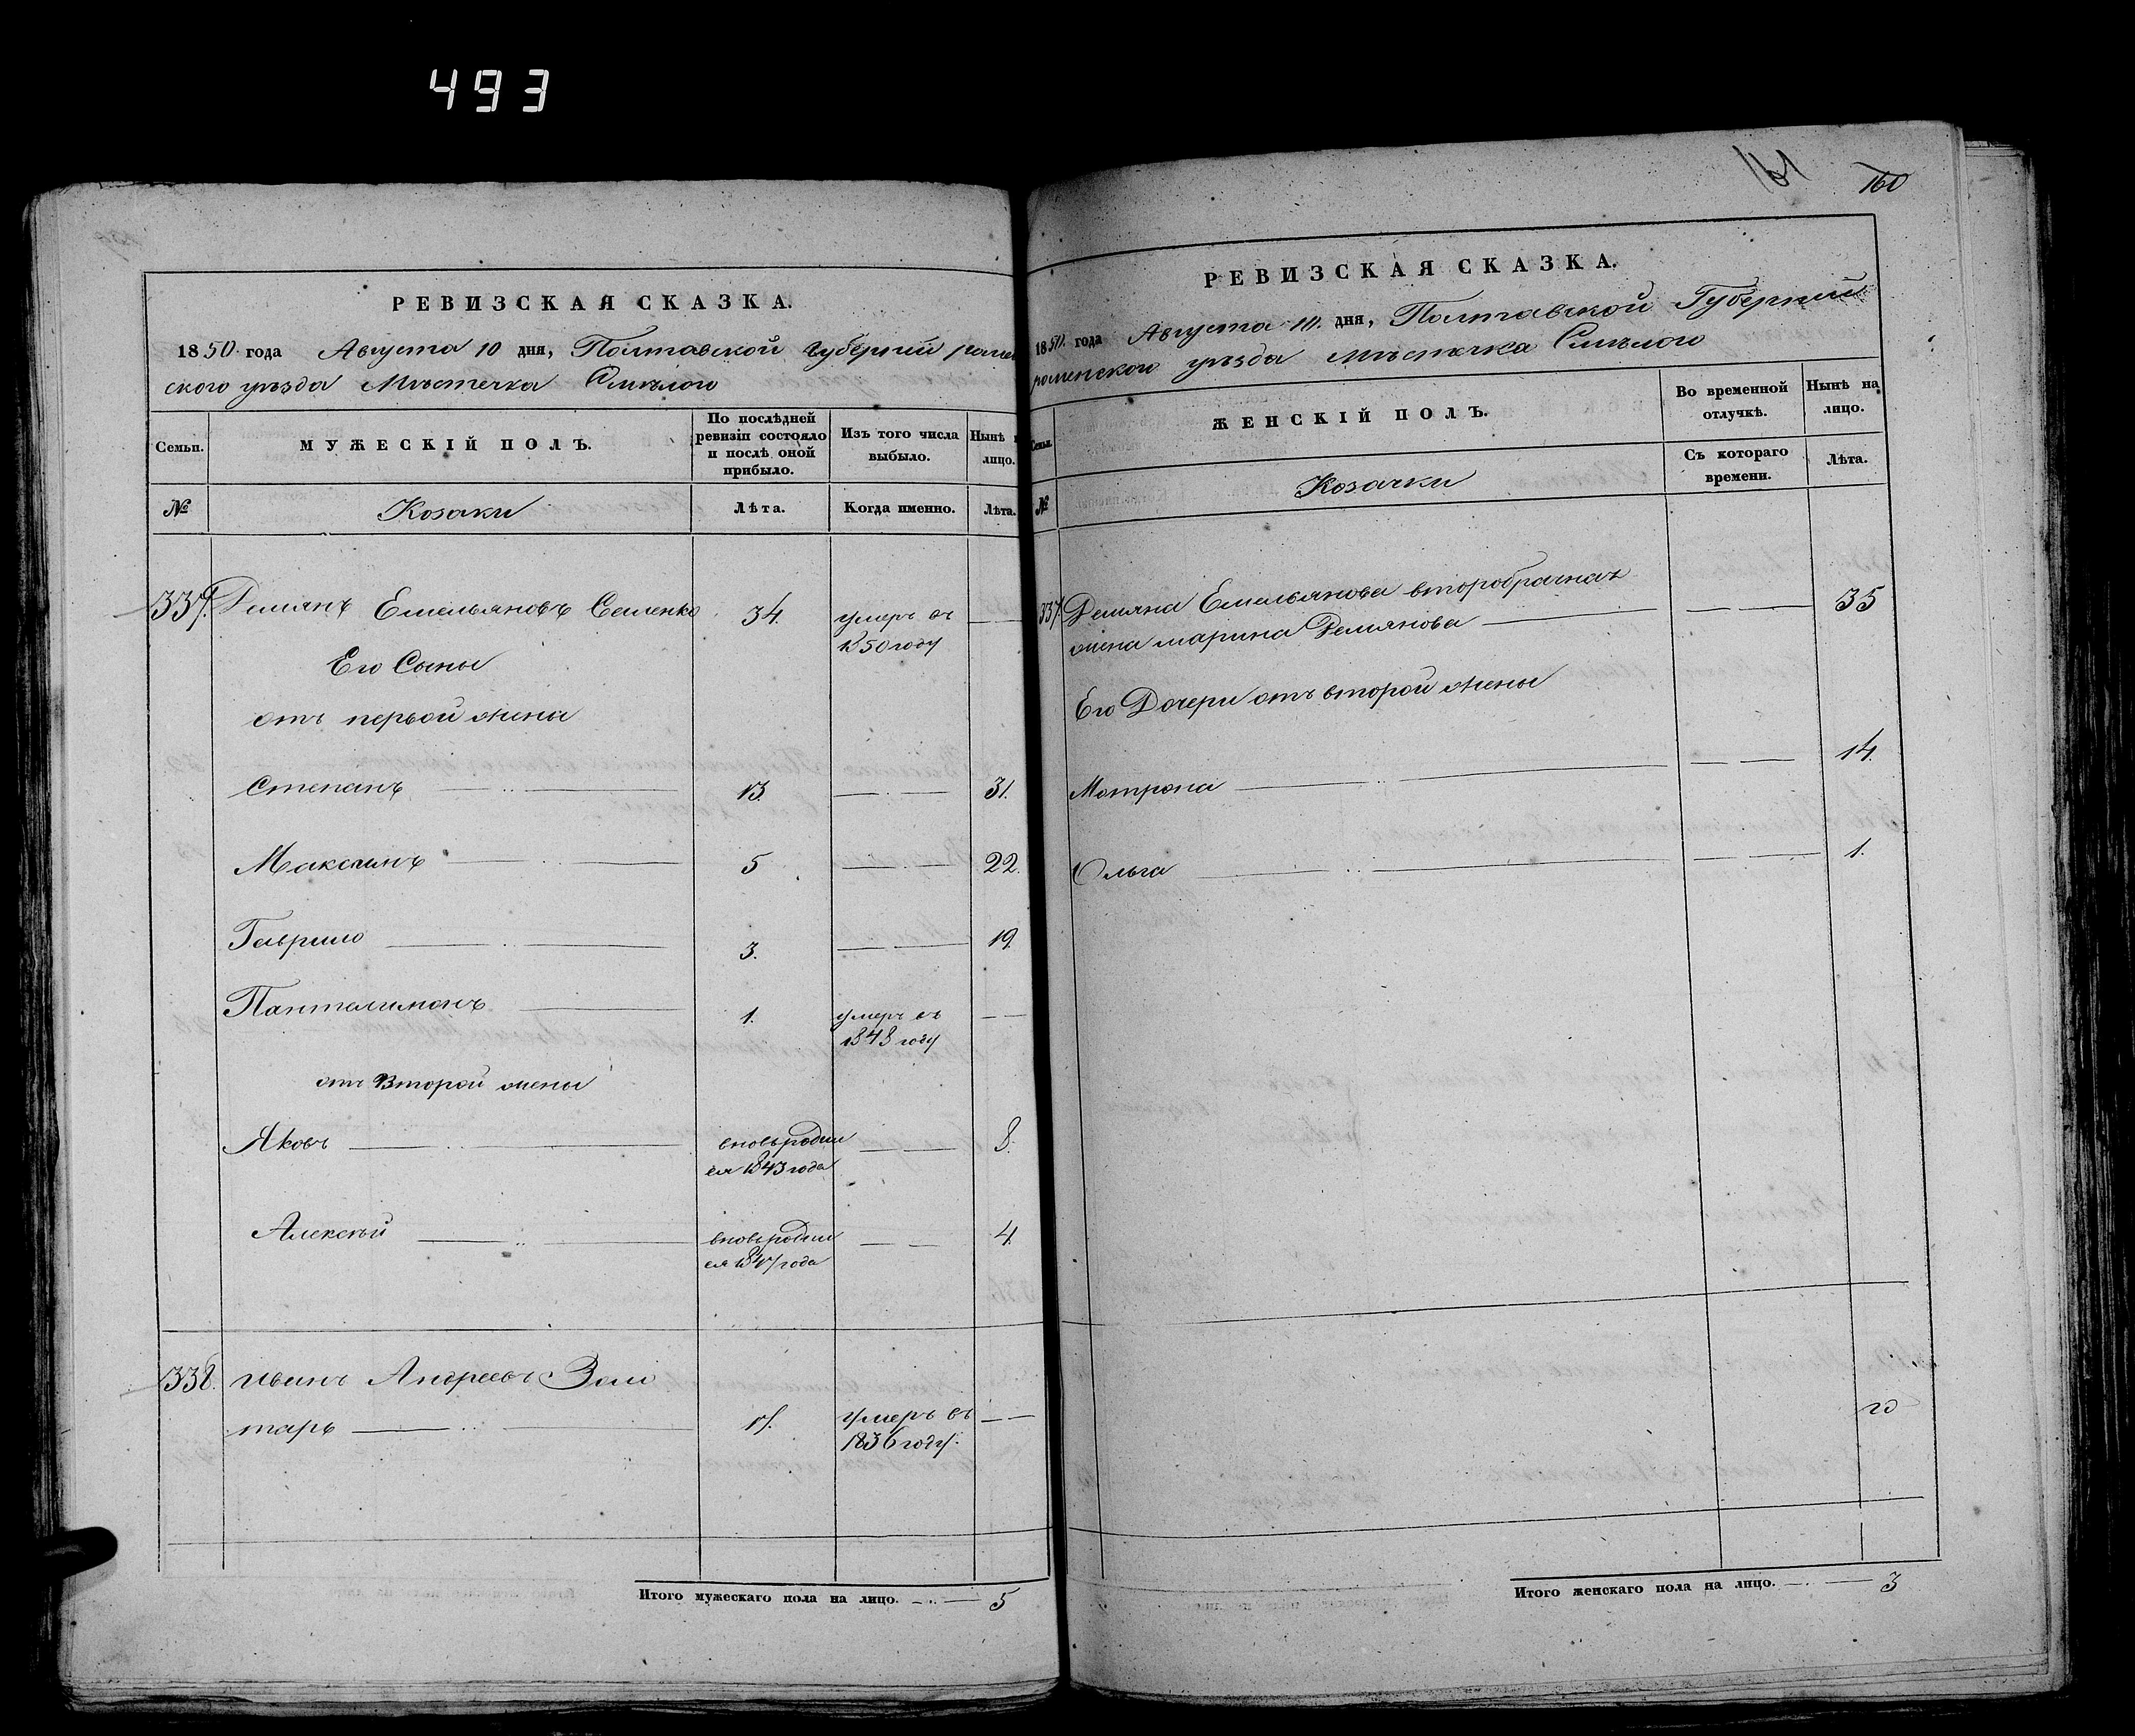 493
РЕВИЗСКАЯ СКАЗКА.
1850 года Августа 10 дня, Полтавской Губерній ромен
ского уѣзда Мѣстечка Смѣлого
Семьи.
МУЖЕСКІЙ ПОЛЪ.
По послѣдней
ревизіи состояло
и послѣ оной
прибыло.
Изъ того числа
выбыло.
Нынѣ
лицо.
№
Козаки
Лѣта.
Когда именно.
Лѣта.
337. Демянъ Емельяновъ Семенко 34. умеръ въ
1850 году
Его Сыны
отъ первой жены
Степанъ 13 31.
Максимъ 5 22.
Гаврило 3. 19.
Пантелимонъ 1. умеръ въ
1848 году
отъ Второй жены
Яковъ вновьродил 8.
ся 1843 года
Алексѣй вновьродил 4.
ся 1847 года
338. Иванъ Андреевъ Золо
тарь 17. умеръ въ
1836 году.
Итого мужескаго пола на лицо. 5
161 160
РЕВИЗСКАЯ СКАЗКА.
1850. года Августа 10. дня, Полтавской Губерній
роменского уѣзда мѣстечка Смѣлого
Семьи.
ЖЕНСКІЙ ПОЛЪ.
Во временной
отлучкѣ.
Нынѣ на
лицо.
№
Козачки
Съ котораго
времени.
Лѣта.
337 Демяна Емельянова второбрачная 35
жена марина Демянова
Его Дочери отъ второй жены
Мотрона 14.
Ольга 1.
Итого женскаго пола на лицо. 3